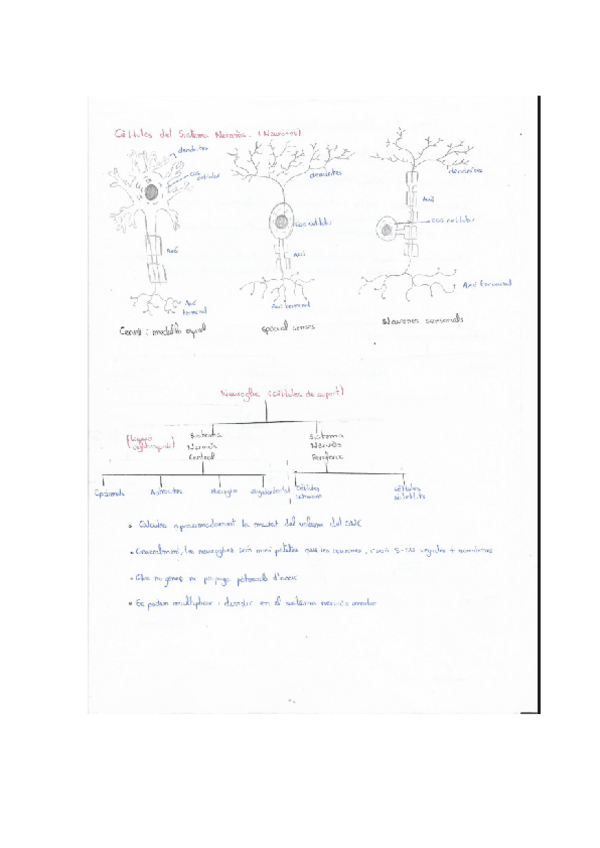 Cèl·lules del Sistema Nerviós. (Neurones)
dendrites
cos cel·lular
Axó
Axó terminal
Cervell i medul·la espinal
dendrites
cos cel·lular
Axó
Axó terminal
special senses
dendrites
Axó
cos cel·lular
Axó terminal
Neurones sensorials
Neuroglia (Cèl·lules de suport)
Sistema Nerviós Central
Sistema Nerviós Perifèric
Astròcits
Cèl·lules schwann
Cèl·lules satèl·lits
aproximadament la meitat del volum del SNC
Generalment, les neuroglies són més petites que les neurones, 5-50 vegades + nombroses
ni propaga potencials d'acció
Es poden multiplicar i dividir en el sistema nerviós madur